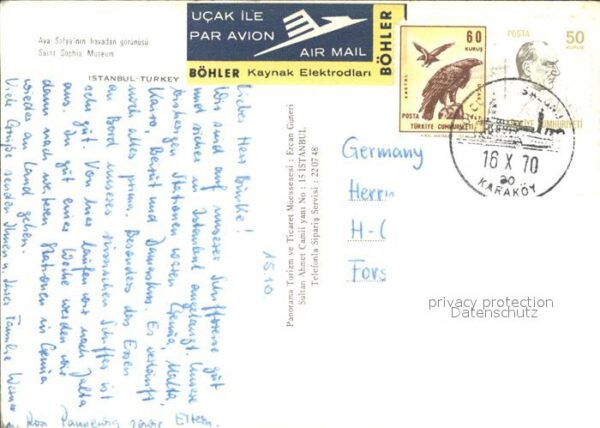 Aya Sofya'nın havadan görünüsü
Saint Sophia Museum
ISTANBUL-TURKEY
UÇAK İLE
PAR AVION
AIR MAIL
BÖHLER Kaynak Elektrodları
BÖHLER
60
KURUŞ
KARTAL
POSTA
TÜRKİYE CUMHURİYETİ
POSTA
50
KURUŞ
TÜRKİYE CUMHURİYETİ
16 X 70
20
KARAKÖY
Germany
Herrn
H-
Fors
privacy protection
Datenschutz
Panorama Turizm ve Ticaret Müessesesi : Ercan Güneri
Sultan Ahmet Camii yanı No : 15 İSTANBUL
Telefonla Sipariş Servisi : 22 07 48
15.10.
Lieber Herr
Wir sind auf unserer Schiffsreise gut
und sicher in Istanbul angelangt. Unsere
bisherigen Stationen waren Genua, Malta,
Kairo, Beirut und Damaskus. Es verläuft
noch alles prima. Besonders das Essen
an Bord unseres russischen Schiffes ist
sehr gut. Von hier laufen wir nach Jalta
aus. In gut einer Woche werden wir
dann nach weiteren Stationen in Genua
wieder an Land gehen.
Viele Grüße senden Ihnen u. Ihrer Familie Werner
u. sowie Eltern.